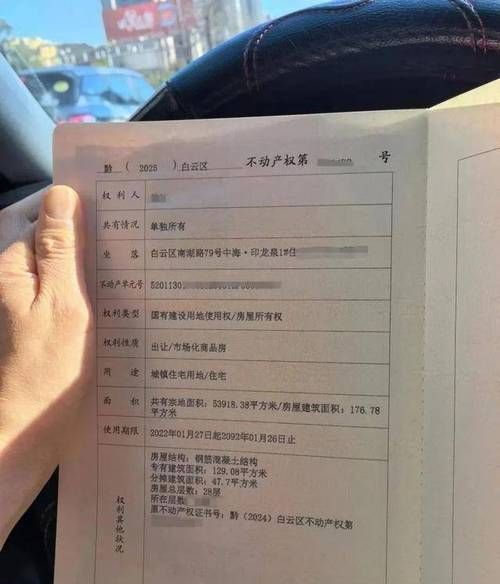 黔（2025）白云区 不动产权第 号
权利人
共有情况 单独所有
坐落 白云区南湖路79号中海·印龙泉1#
不动产单元号 5201130
权利类型 国有建设用地使用权/房屋所有权
权利性质 出让/市场化商品房
用途 城镇住宅用地/住宅
面积 共有宗地面积：53918.38平方米/房屋建筑面积：176.78
平方米
使用期限 2022年01月27日起2092年01月26日止
权利其他状况
房屋结构：钢筋混凝土结构
专有建筑面积：129.08平方米
分摊建筑面积：47.7平方米
房屋总层数：28层
所在层数：
原不动产权证书号：黔（2024）白云区不动产权第